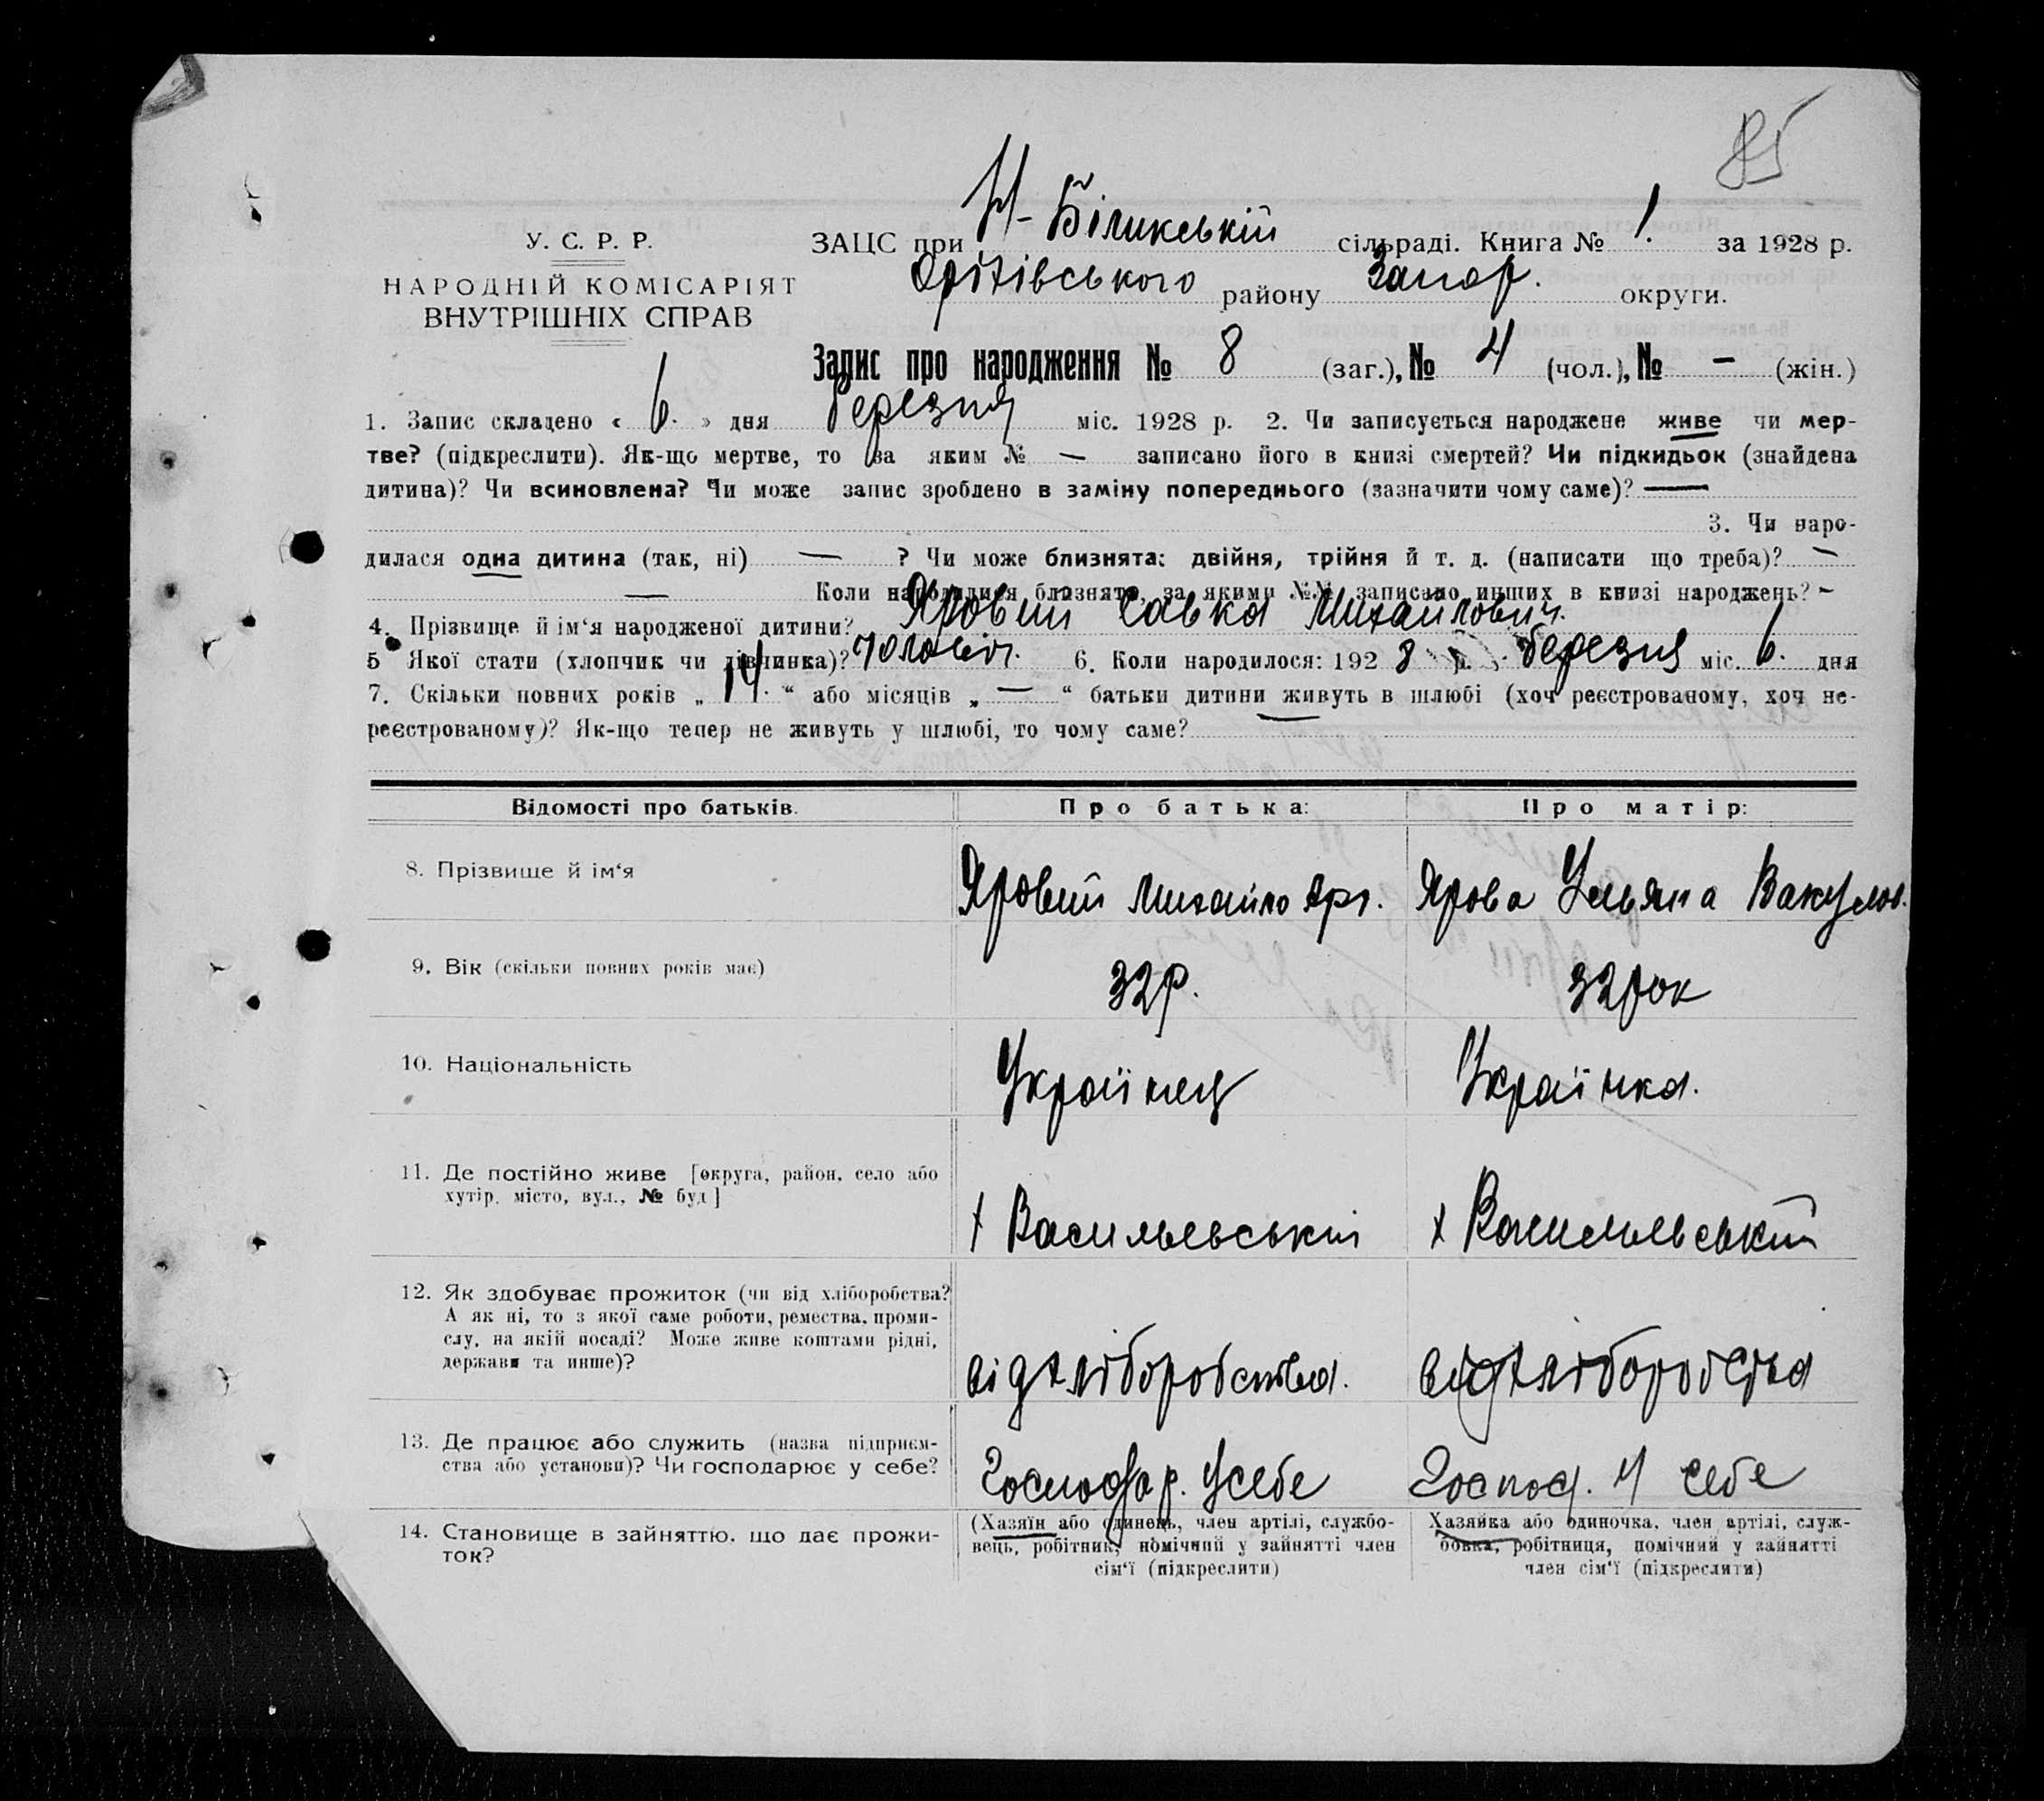 85
У. С. Р. Р.
НАРОДНІЙ КОМІСАРІЯТ
ВНУТРІШНІХ СПРАВ
ЗАЦС при Н-Біликській сільраді. Книга № 1. за 1928 р.
Оріхівського району Запор. округи.
Запис про народження № 8 (заг.), № 4 (чол.), № — (жін.)
1. Запис складено « 6. » дня березня міс. 1928 р. 2. Чи записується народжене живе чи мер-
тве? (підкреслити). Як-що мертве, то за яким № — записано його в книзі смертей? Чи підкидьок (знайдена
дитина)? Чи всиновлена? Чи може запис зроблено в заміну попереднього (зазначити чому саме)? —
3. Чи наро-
дилася одна дитина (так, ні) — ? Чи може близнята: двійня, трійня й т. д. (написати що треба)? —
— Коли народилися близнята, за якими №№ записано инших в книзі народжень? -
4. Прізвище й ім‘я народженої дитини? Яровий Савка Михайлович.
5 Якої стати (хлопчик чи дівчинка)? чоловіч. 6. Коли народилося: 192 8 р. березня міс. 6. дня
7. Скільки повних років „ 14. “ або місяців „ — “ батьки дитини живуть в шлюбі (хоч реєстрованому, хоч не-
реєстрованому)? Як-що тепер не живуть у шлюбі, то чому саме?
Відомості про батьків. Про батька: Про матір:
8. Прізвище й ім‘я Яровий Михайло Арт. Ярова Ульяна Вакулов.
9. Вік (скільки повних років має) 32р. 32рок
10. Національність Українец Українка.
11. Де постійно живе [округа, район, село або
хутір, місто, вул., № буд]
х Васильевський х Васильевський
12. Як здобуває прожиток (чи від хліборобства?
А як ні, то з якої саме роботи, ремества, проми-
слу, на якій посаді? Може живе коштами рідні,
держави та инше)?
від хліборобства. від хліборобства
13. Де працює або служить (назва підприєм-
ства або установи)? Чи господарює у себе?
Господар. Усебе Господ. У себе
14. Становище в зайняттю, що дає прожи-
ток?
(Хазяїн або одинець, член артілі, службо-
вець, робітник, помічний у зайнятті член
сім‘ї (підкреслити)
Хазяйка або одиночка, член артілі, служ-
бовка, робітниця, помічний у зайнятті
член сім‘ї (підкреслити)